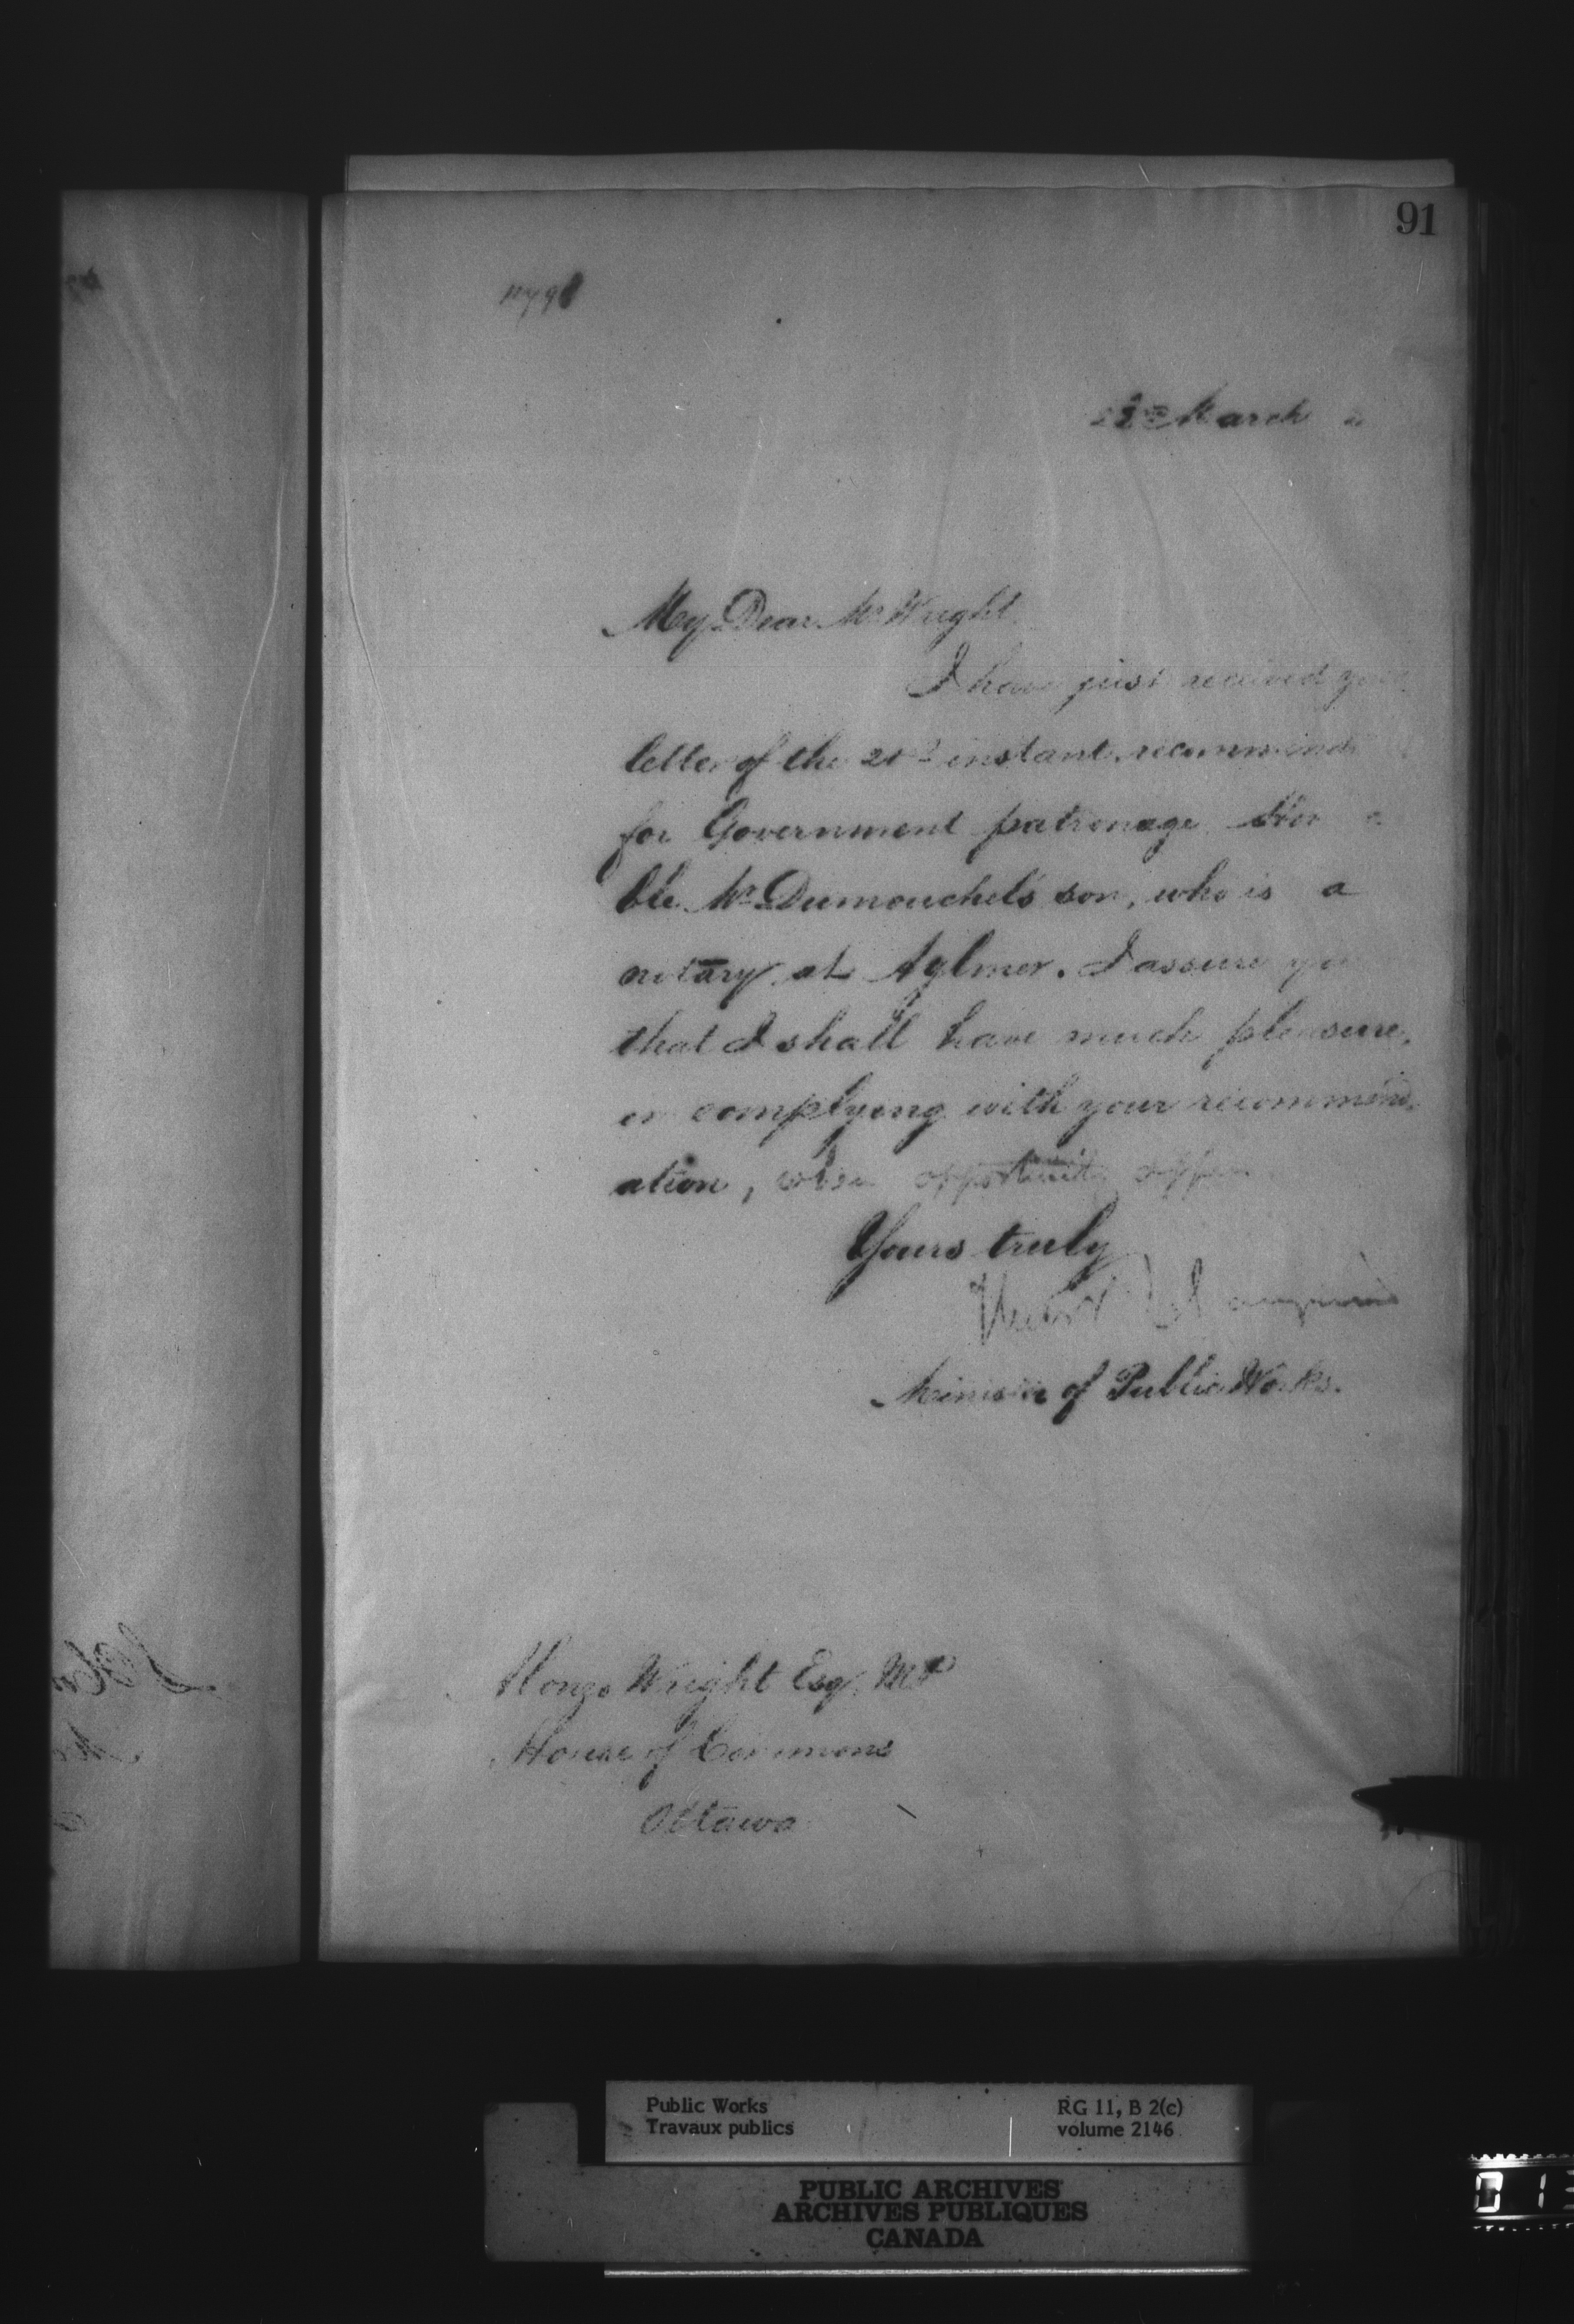 91
22nd March
My Dear Mr Wright
I have just received your
letter of the 21st instant, recommend
for Government patronage Hon
ble Mr Dumouchel's son, who is a
notary at Aylmer. I assure you
that I shall have much pleasure,
in complying with your recommend
ation, when opportunity offers
Yours truly
Hector L. Langevin
Minister of Public Works.
Alonzo Wright Esq. MP
House of Commons
Ottawa
Public Works
Travaux publics
RG 11, B 2(c)
volume 2146
PUBLIC ARCHIVES
ARCHIVES PUBLIQUES
CANADA